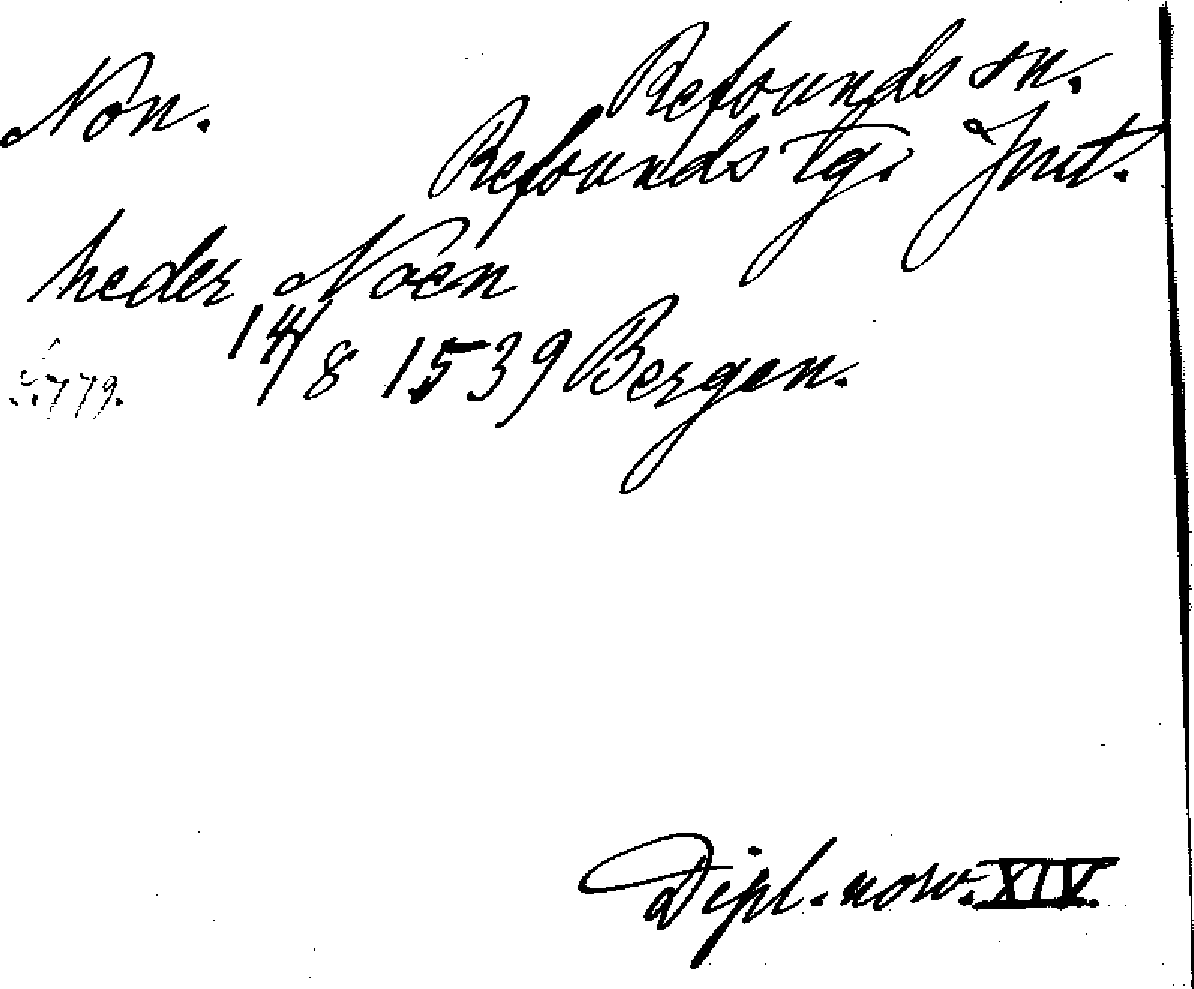 Nön. Refsunds sn.
Refsunds tg. Jmt.
heder Nöen
14/8 1539 Bergen.
S. 779.
Dipl. norv. XIV.